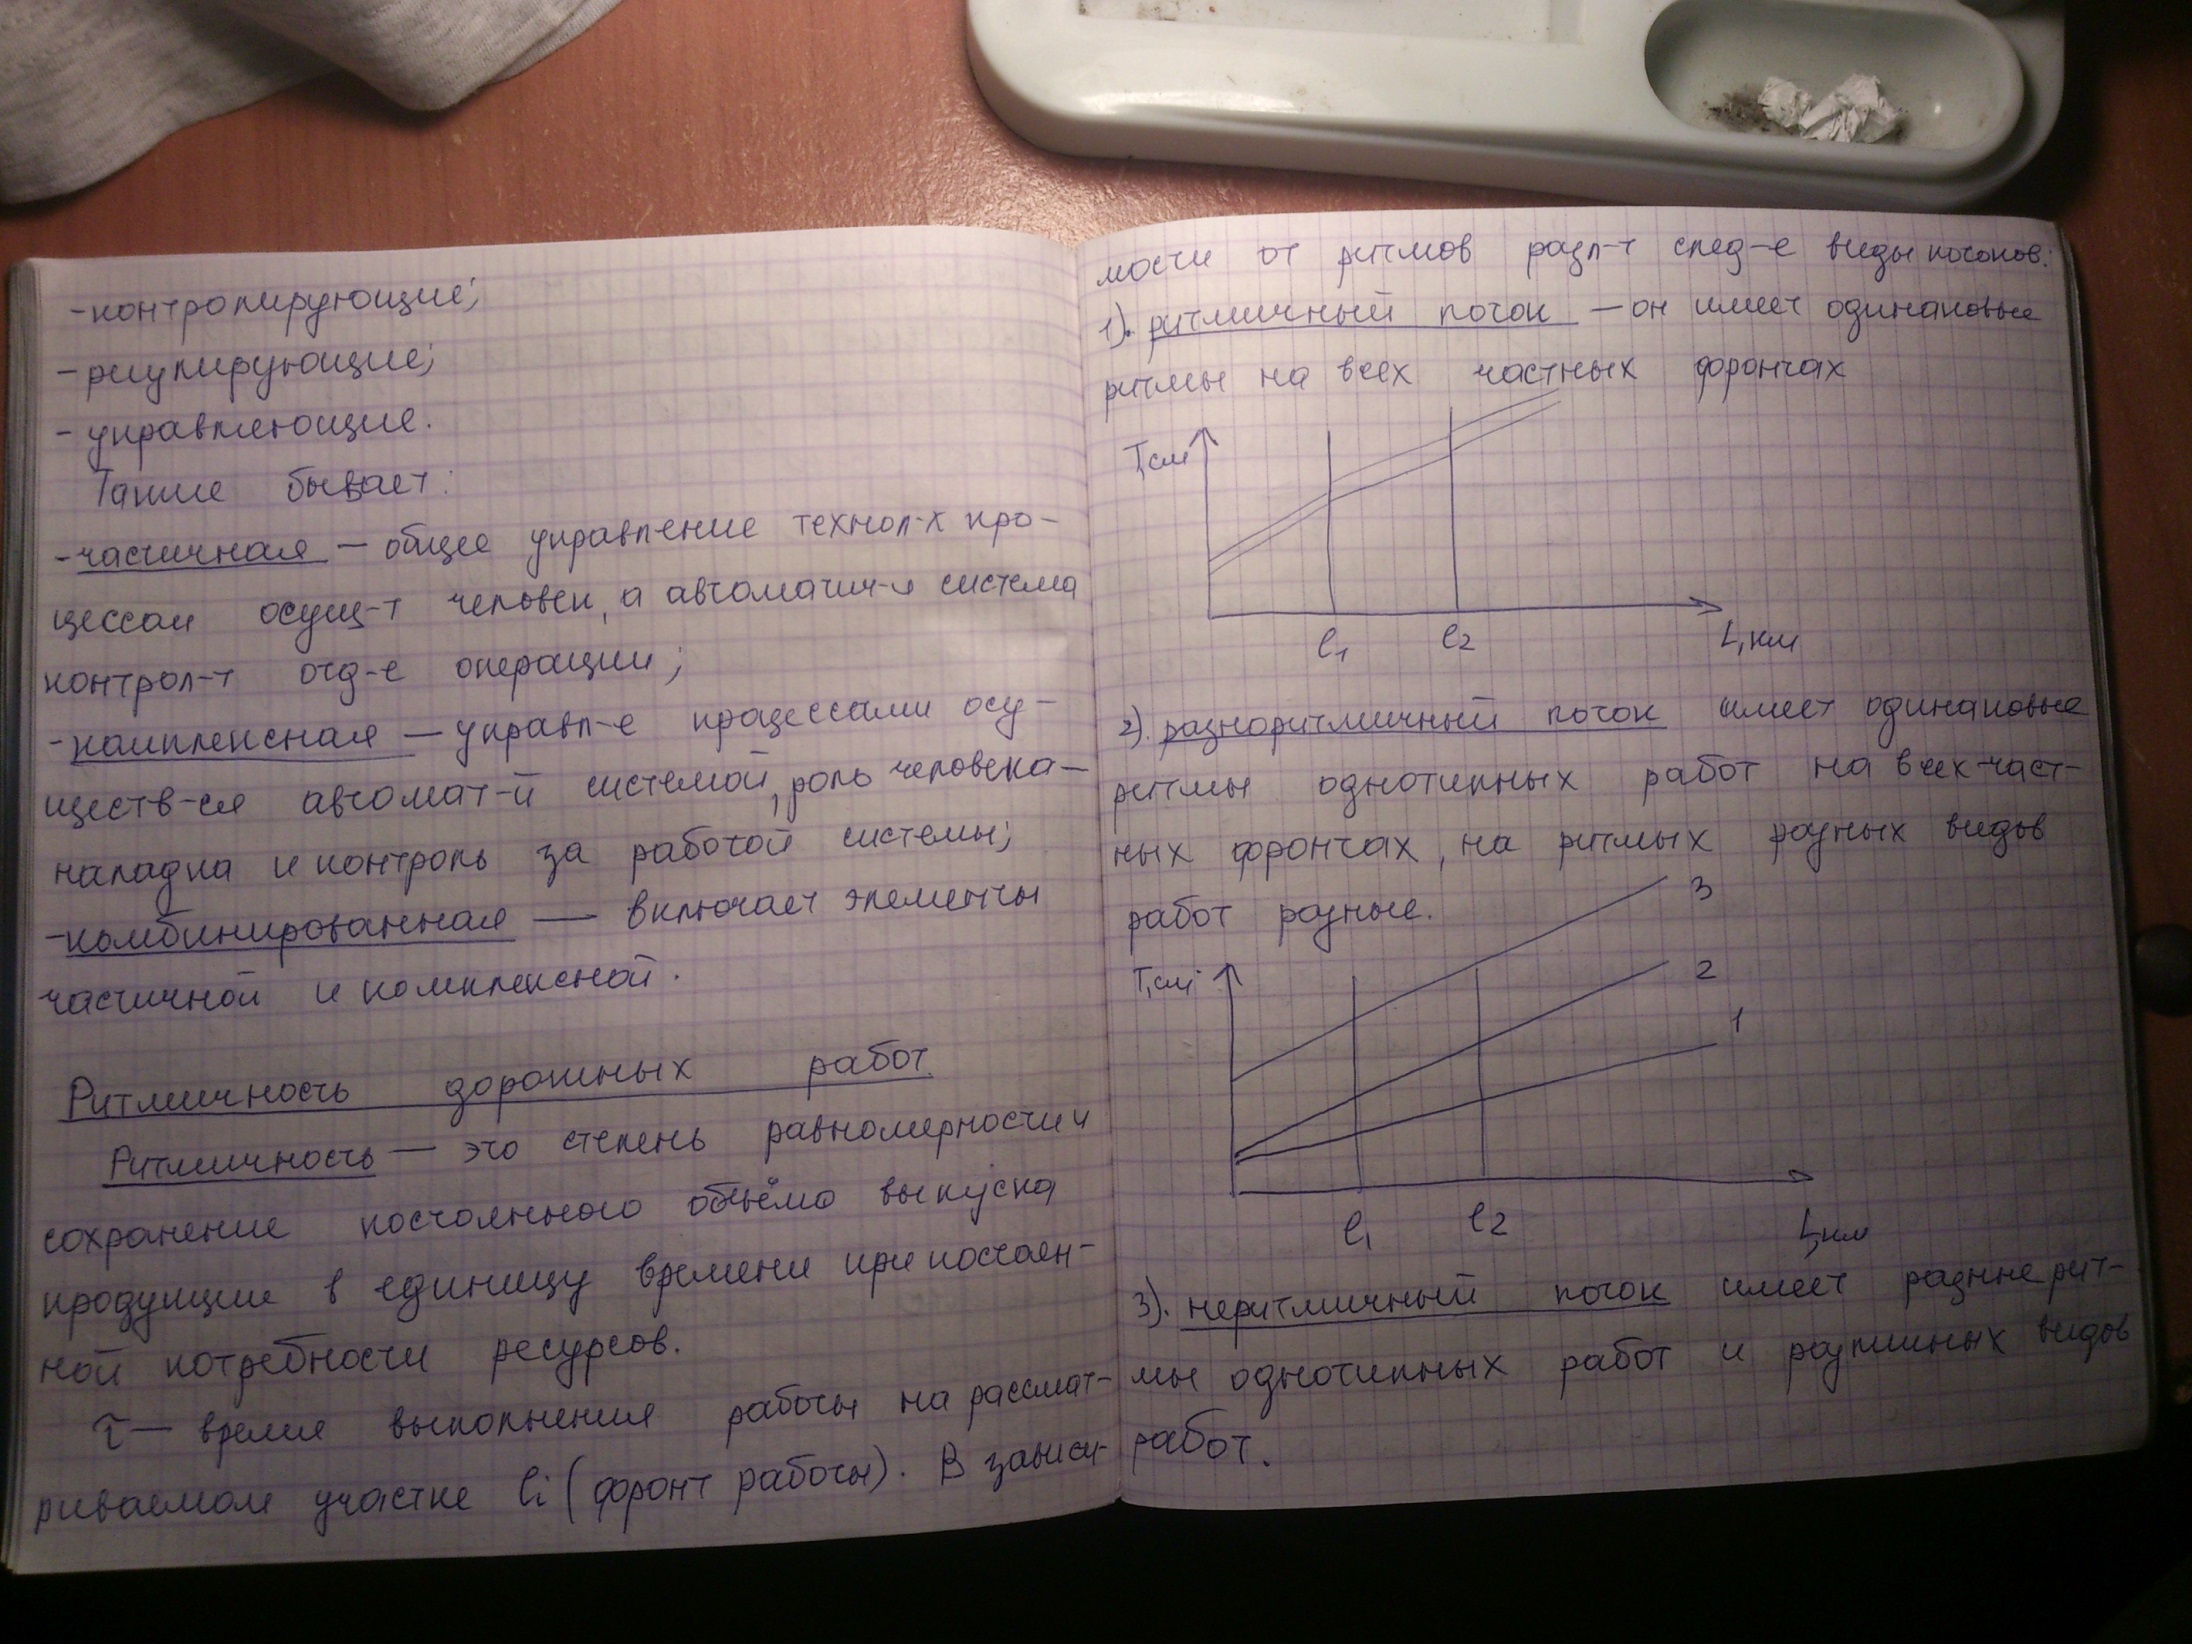 -контролирующие;
-регулирующие;
-управляющие.
Также бывает:
-частичная — общее управл-ение технол-х про-
цессом осущ-т человек, а автоматич-я система
контрол-т отд-е операции;
-комплексная — управл-е процессами осу-
ществ-ся автомат-й системой, роль человека—
наладка и контроль за работой системы;
-комбинированная — включает элементы
частичной и комплексной.
Ритмичность дорожных работ.
Ритмичность — это степень равномерности и
сохранение постоянного объёма выпуска
продукции в единицу времени при постоян-
ной потребности ресурсов.
τ — время выполнения работы на рассмат-
риваемом участке li (фронт работы). В зависи-
мости от ритмов разл-т след-е виды потоков:
1). ритмичный поток — он имеет одинаковые
ритмы на всех частных фронтах
T,см
l1 l2 L,км
2). разноритмичный поток имеет одинаковые
ритмы однотипных работ на всех част-
ных фронтах, на ритмых разных видов
работ разные.
3
T,см 2
1
l1 l2 L,км
3). неритмичный поток имеет разные рит-
мы однотипных работ и различных видов
работ.